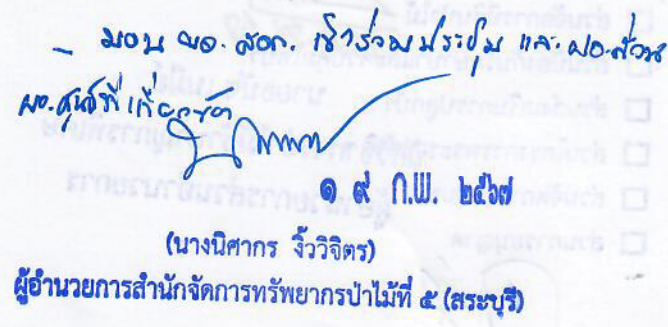 - มอบ ผอ. สจก. เข้าร่วมประชุม และ ผอ.ส่วน
ผอ.ศูนย์ที่เกี่ยวข้อง
๑ ๙ ก.พ. ๒๕๖๗
(นางนิศากร วิ้ววิจิตร)
ผู้อำนวยการสำนักจัดการทรัพยากรป่าไม้ที่ ๕ (สระบุรี)